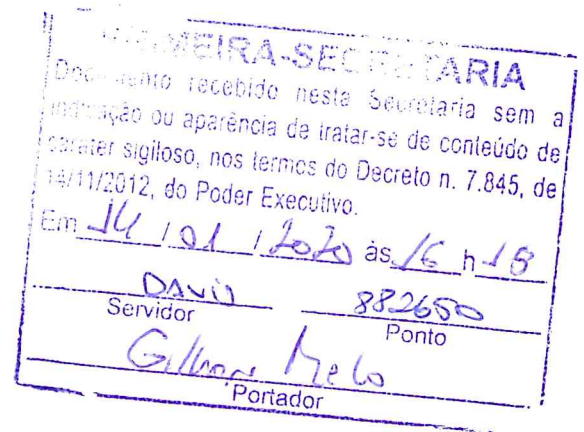 PRIMEIRA-SECRETARIA
Documento recebido nesta Secretaria sem a
indicação ou aparência de tratar-se de conteúdo de
caráter sigiloso, nos termos do Decreto n. 7.845, de
14/11/2012, do Poder Executivo.
Em 14 / 01 / 2020 às 16 h 18
DAVID 882650
Servidor Ponto
Melo
Portador